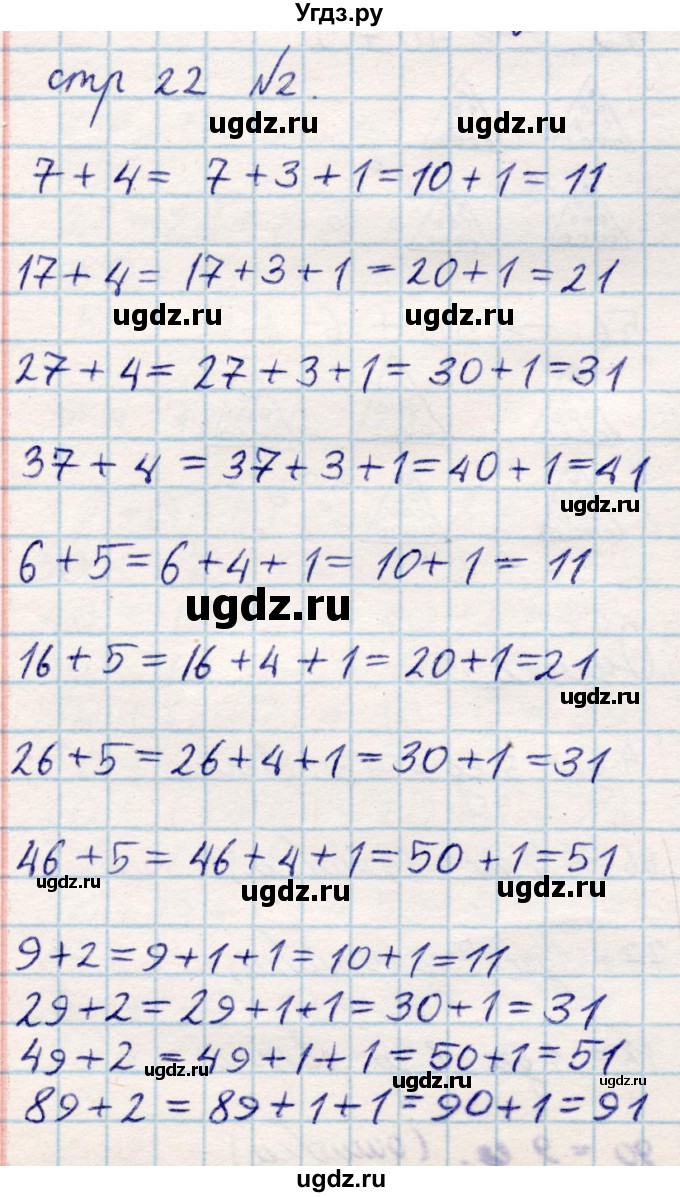 Угдз.ру
стр 22 №2.
ugdz.ru ugdz.ru
7 + 4 = 7 + 3 + 1 = 10 + 1 = 11
17 + 4 = 17 + 3 + 1 = 20 + 1 = 21
ugdz.ru ugdz.ru
27 + 4 = 27 + 3 + 1 = 30 + 1 = 31
37 + 4 = 37 + 3 + 1 = 40 + 1 = 41
ugdz.ru
6 + 5 = 6 + 4 + 1 = 10 + 1 = 11
ugdz.ru
16 + 5 = 16 + 4 + 1 = 20 + 1 = 21
ugdz.ru
26 + 5 = 26 + 4 + 1 = 30 + 1 = 31
46 + 5 = 46 + 4 + 1 = 50 + 1 = 51
ugdz.ru ugdz.ru ugdz.ru
9 + 2 = 9 + 1 + 1 = 10 + 1 = 11
29 + 2 = 29 + 1 + 1 = 30 + 1 = 31
49 + 2 = 49 + 1 + 1 = 50 + 1 = 51
ugdz.ru ugdz.ru ugdz.ru
89 + 2 = 89 + 1 + 1 = 90 + 1 = 91
ugdz.ru